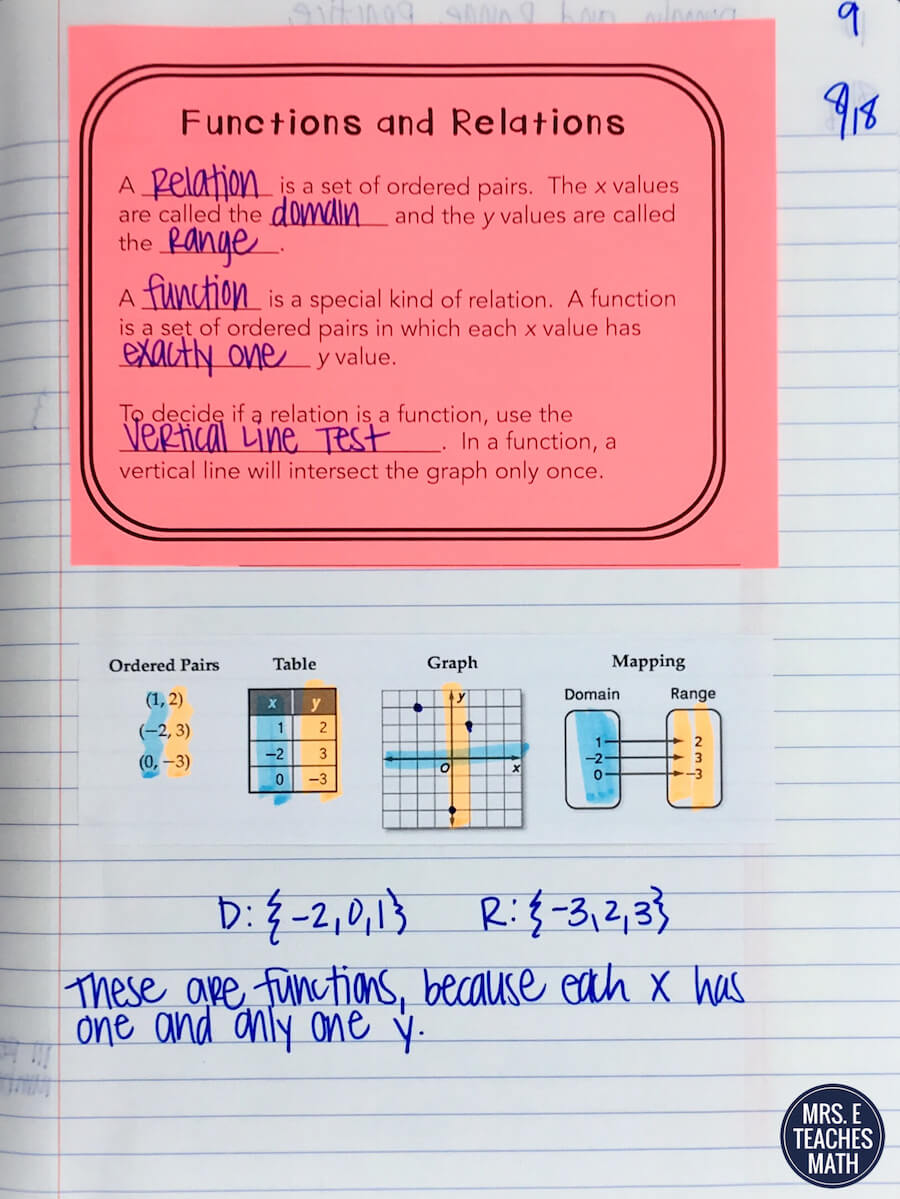 9
9/18
Functions and Relations
A Relation is a set of ordered pairs. The x values
are called the domain and the y values are called
the Range.
A function is a special kind of relation. A function
is a set of ordered pairs in which each x value has
exactly one y value.
To decide if a relation is a function, use the
Vertical Line Test. In a function, a
vertical line will intersect the graph only once.
Ordered Pairs
(1, 2)
(−2, 3)
(0, −3)
Table
x y
1 2
−2 3
0 −3
Graph
y
O x
Mapping
Domain Range
1 2
−2 3
0 −3
D: {−2, 0, 1} R: {−3, 2, 3}
These are functions, because each x has
one and only one y.
MRS. E
TEACHES
MATH